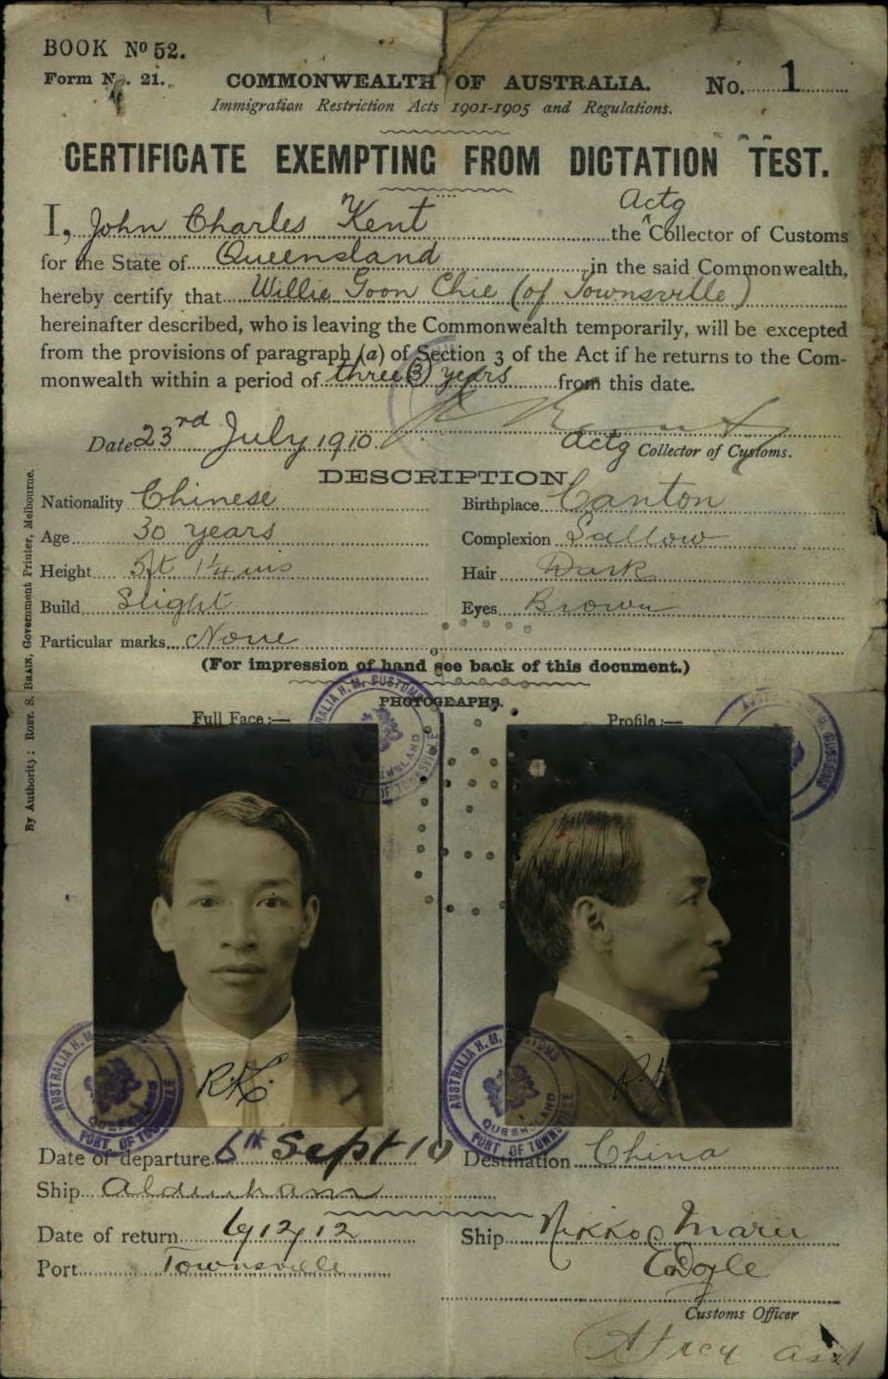 BOOK Nº 52.
Form No. 21.
COMMONWEALTH OF AUSTRALIA.
No. 1
Immigration Restriction Acts 1901-1905 and Regulations.
CERTIFICATE EXEMPTING FROM DICTATION TEST.
Actg
I, John Charles Kent the Collector of Customs
for the State of Queensland in the said Commonwealth,
hereby certify that Willie Goon Chie (of Townsville)
hereinafter described, who is leaving the Commonwealth temporarily, will be excepted
from the provisions of paragraph (a) of Section 3 of the Act if he returns to the Com-
monwealth within a period of three (3) years from this date.
Date 23rd July 1910.
Actg Collector of Customs.
DESCRIPTION.
Nationality Chinese Birthplace Canton
Age 30 years Complexion Sallow
Height 5ft 1¼ ins Hair Dark
Build Slight Eyes Brown
Particular marks None
(For impression of hand see back of this document.)
PHOTOGRAPHS.
Full Face :— Profile :—
AUSTRALIA H.M. CUSTOMS
QUEENSLAND
PORT OF TOWNSVILLE
AUSTRALIA H.M. CUSTOMS
QUEENSLAND
PORT OF TOWNSVILLE
Date of departure 6th Sept 10 Destination China
Ship Aldenham
Date of return 6/12/12 Ship Nikko Maru
Port Townsville
Customs Officer
By Authority: ROBT. S. BRAIN, Government Printer, Melbourne.